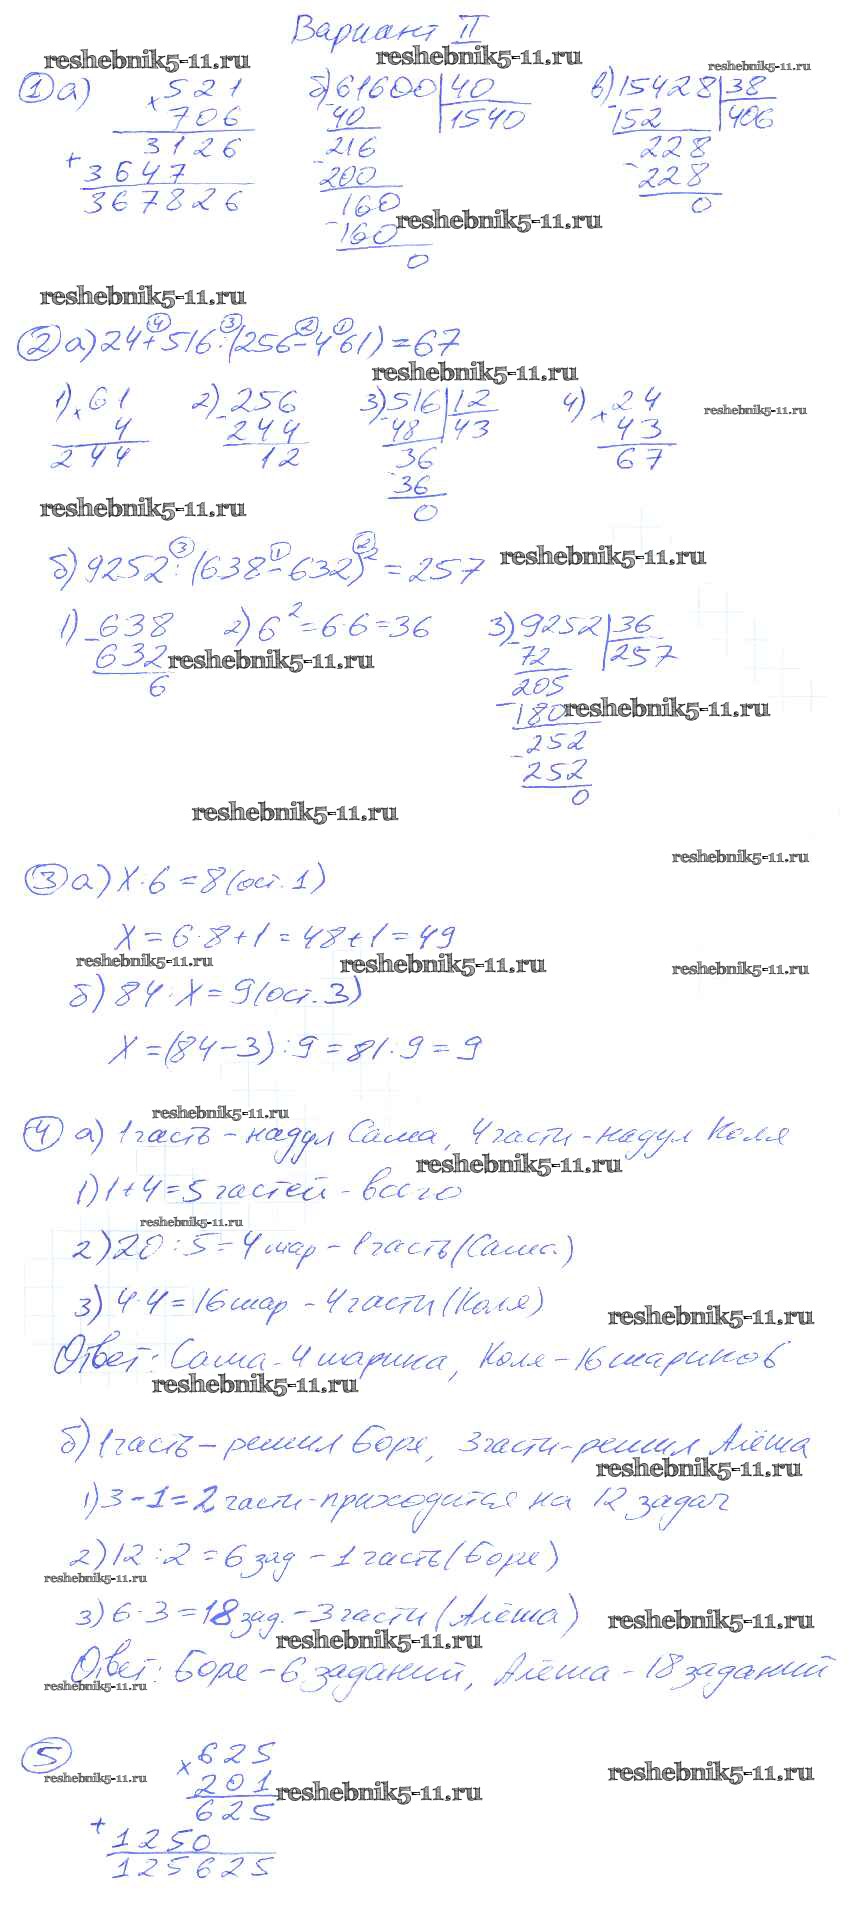 Вариант II
reshebnik5-11.ru reshebnik5-11.ru reshebnik5-11.ru
1 а) 521 б) 61600 | 40 в) 15428 | 38
× 706 - 40 1540 - 152 406
3126 - 216 - 228
+ 3647 200 228
367826 160 0
- 160 reshebnik5-11.ru
0
reshebnik5-11.ru
2 а) 24 + 516 : (256 - 4 · 61) = 67
4 3 2 1
reshebnik5-11.ru
1) × 61 2) - 256 3) 516 | 12 4) × 24 reshebnik5-11.ru
4 244 - 48 43 43
244 12 36 67
- 36
reshebnik5-11.ru 0
б) 9252 : (638 - 632)² = 257 reshebnik5-11.ru
3 1 2
1) - 638 2) 6² = 6·6 = 36 3) 9252 | 36
632 reshebnik5-11.ru - 72 257
6 205
- 180 reshebnik5-11.ru
252
- 252
0
reshebnik5-11.ru
reshebnik5-11.ru
3 а) X · 6 = 8 (ост. 1)
X = 6 · 8 + 1 = 48 + 1 = 49
reshebnik5-11.ru reshebnik5-11.ru reshebnik5-11.ru
б) 84 : X = 9 (ост. 3)
X = (84 - 3) : 9 = 81 : 9 = 9
reshebnik5-11.ru
4 а) 1 часть - надул Саша, 4 части - надул Коля
reshebnik5-11.ru
1) 1 + 4 = 5 частей - всего
reshebnik5-11.ru
2) 20 : 5 = 4 шар - 1 часть (Саша)
3) 4 · 4 = 16 шар - 4 части (Коля)
reshebnik5-11.ru
Ответ: Саша - 4 шарика, Коля - 16 шариков
reshebnik5-11.ru
б) 1 часть - решил Боря, 3 части - решил Алёша
reshebnik5-11.ru
1) 3 - 1 = 2 части - приходится на 12 задач
2) 12 : 2 = 6 зад - 1 часть (Боре)
reshebnik5-11.ru
3) 6 · 3 = 18 зад. - 3 части (Алёша) reshebnik5-11.ru
reshebnik5-11.ru
Ответ: Боре - 6 заданий, Алёша - 18 заданий
reshebnik5-11.ru
5 × 625
reshebnik5-11.ru 201 reshebnik5-11.ru reshebnik5-11.ru
625
+ 1250
125625